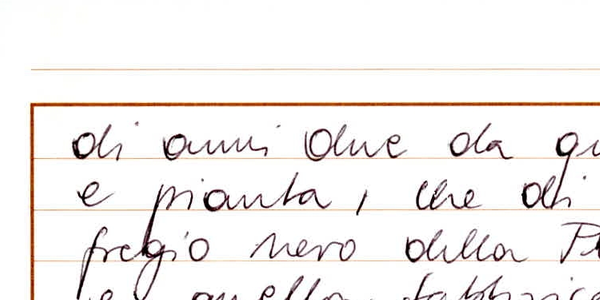 di anni due da qu
e pianta, che di
fregio nero della
quella fabbrica